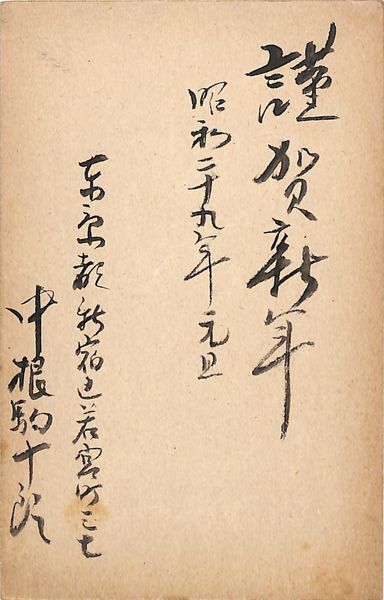 謹賀新年
昭和二十九年元旦
東京都新宿区若宮町三七
中根駒十郎